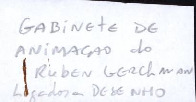 GABINETE DE
ANIMAÇÃO do
RUBEN GERCHMAN
Ligados a DESENHO